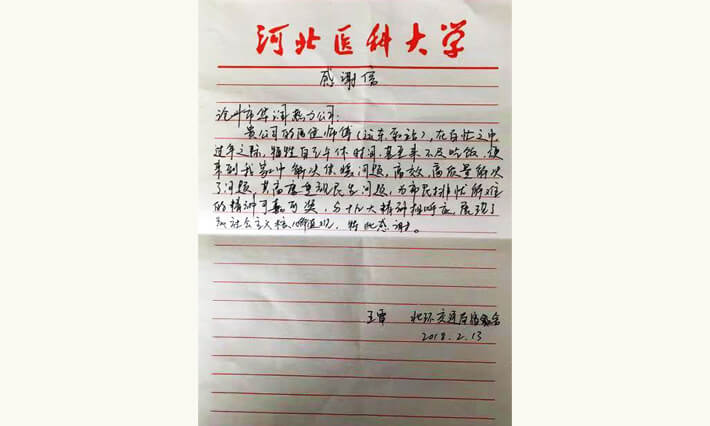 河北医科大学
感谢信
沧州市华润热力公司：
贵公司的周健师傅（运东泵站），在百忙之中
过年之际，牺牲自己午休时间，甚至来不及吃饭，便
来到我家中解决供暖问题，高效、高质量解决
了问题，其高度重视民生问题，为市民排忧解难
的精神可嘉可奖，与十九大精神相呼应，展现了
社会主义核心价值观，特此感谢。
王 北环交通局宿舍
2018.2.13